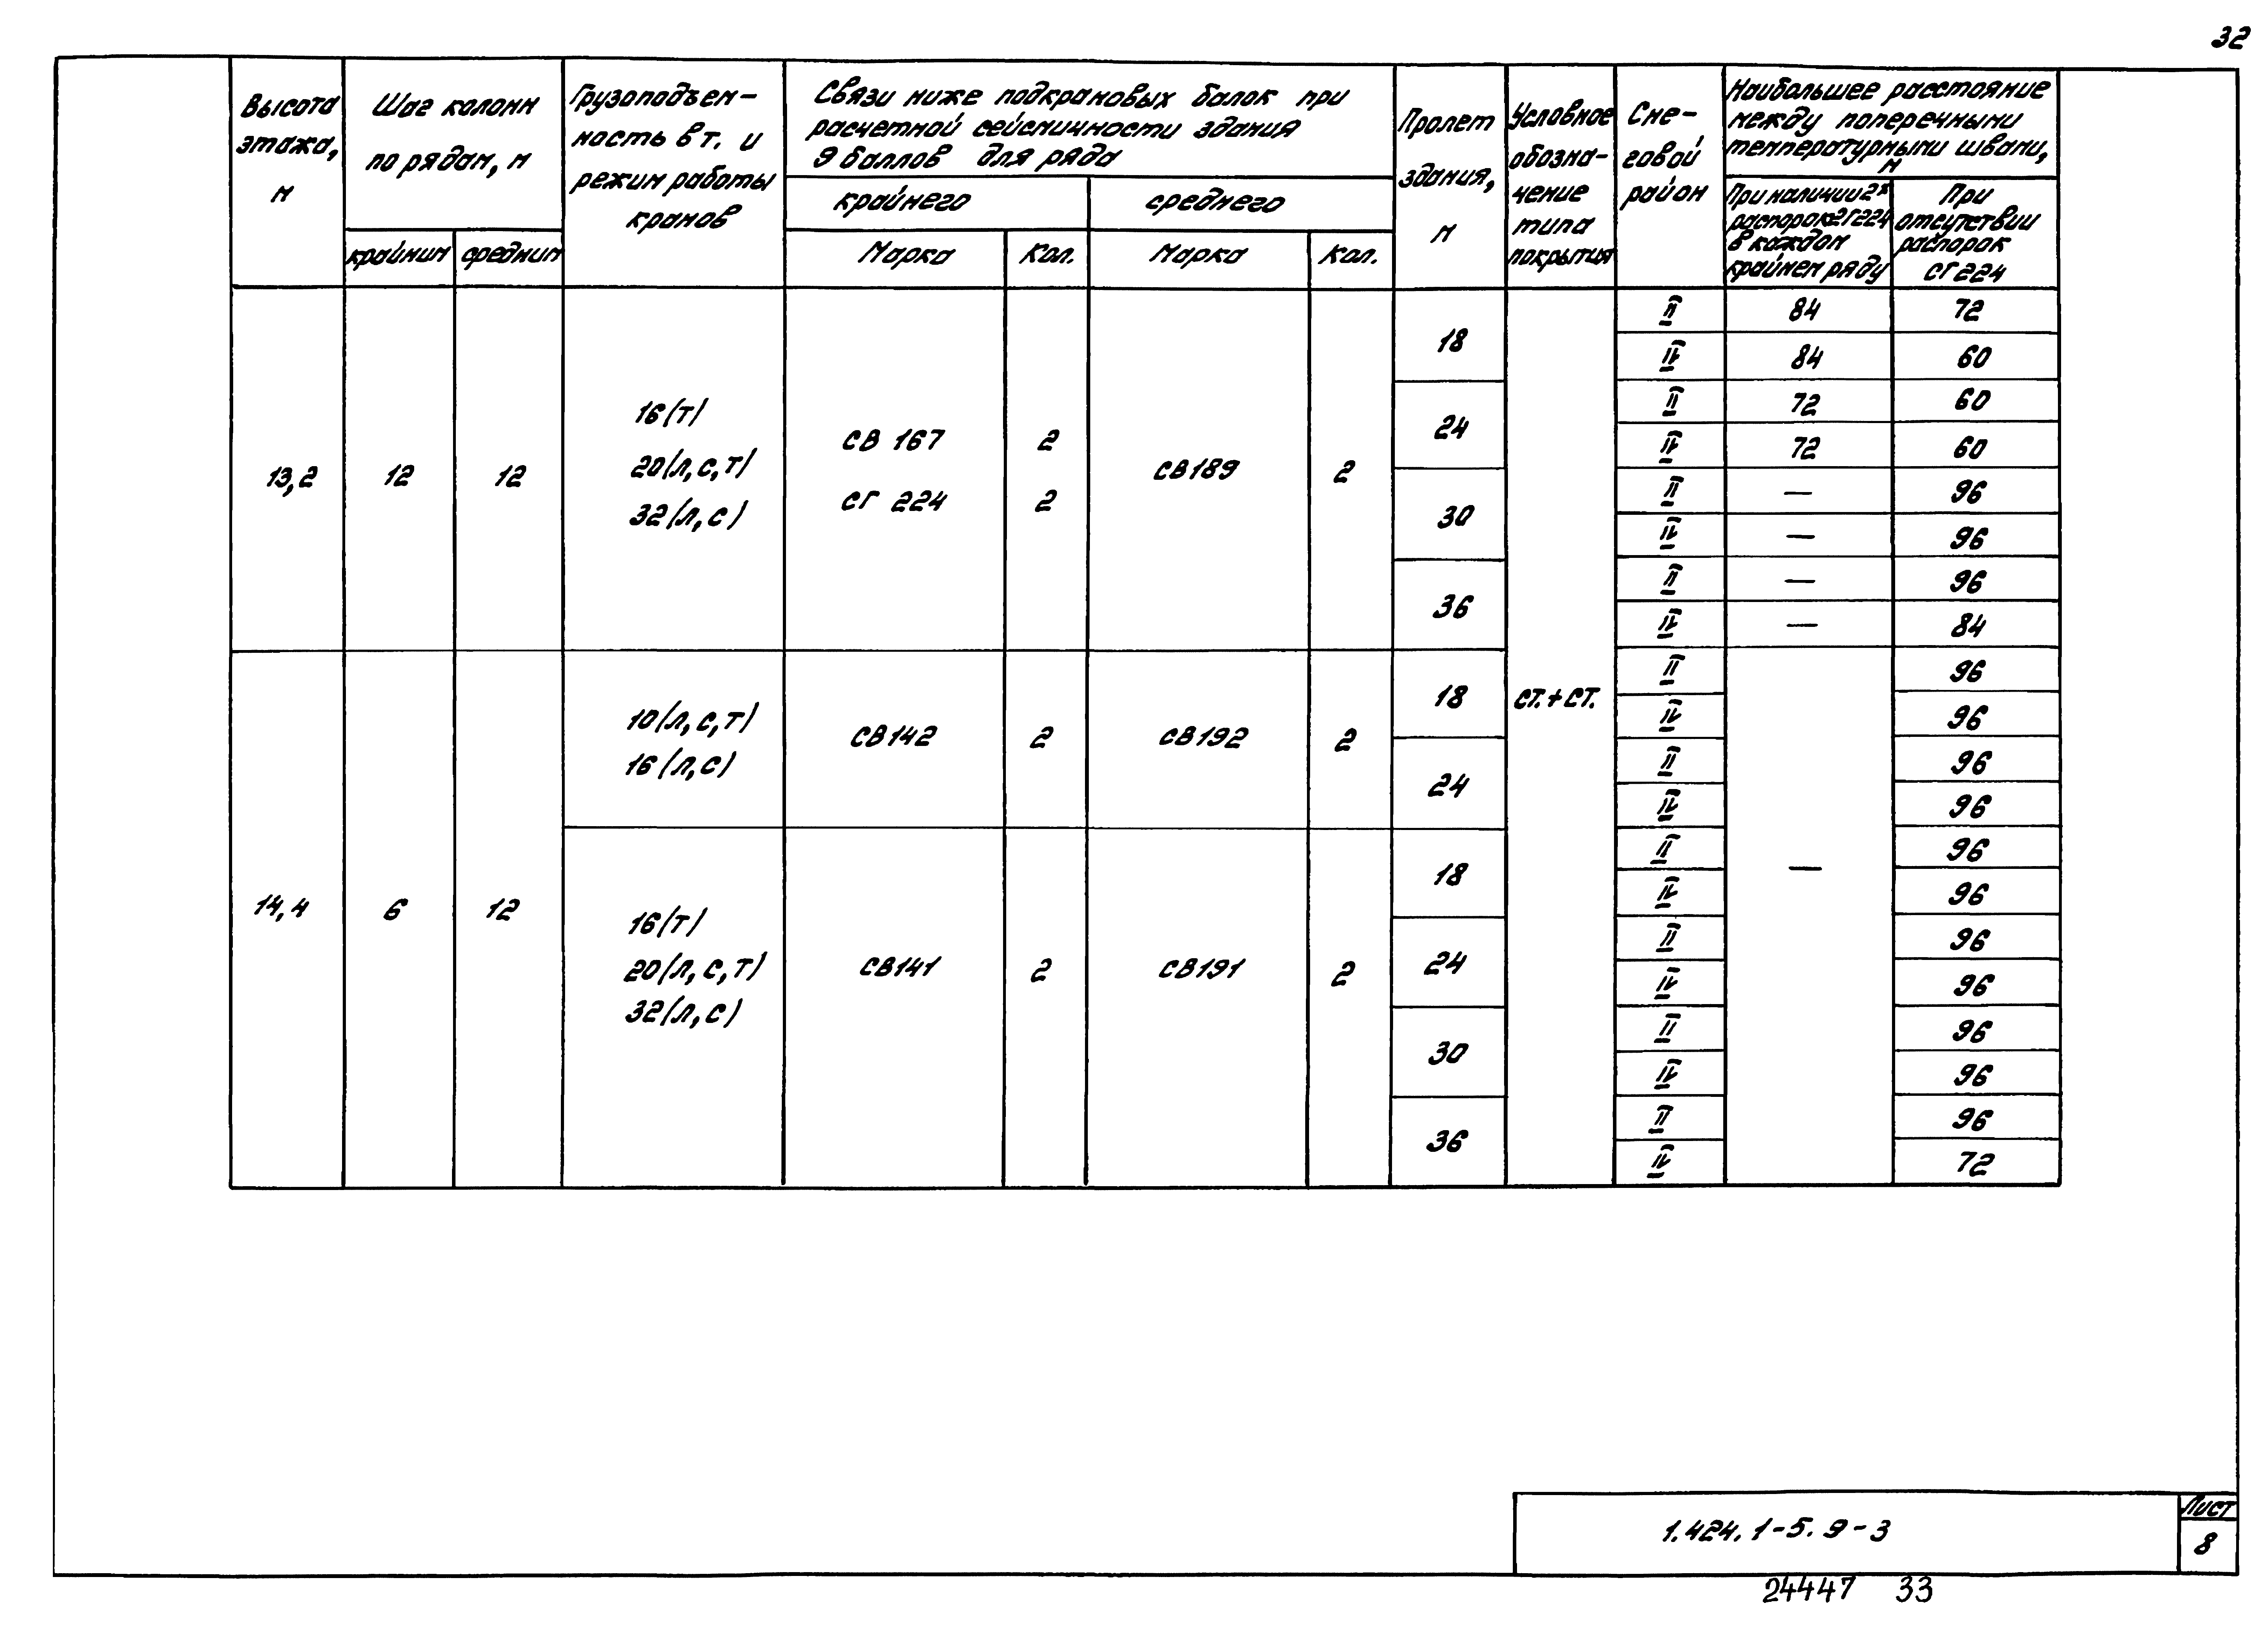 32
Высота этажа, м
Шаг колонн по рядам, м
крайним
средним
Грузоподъем-
ность в т. и
режим работы
кранов
Связи ниже подкрановых балок при
расчетной сейсмичности здания
9 баллов для ряда
крайнего
среднего
Марка
Кол.
Марка
Кол.
Пролет здания, м
Условное
обозна-
чение
типа
покрытия
Сне-
говой
район
Наибольшее расстояние
между поперечными
температурными швами,
м
При наличии 2х
распорок СГ224
в каждом
крайнем ряду
При
отсутствии
распорок
СГ 224
13,2 12 12
16(т)
20(л,с,т)
32(л,с)
СВ 167 2
СГ 224 2
СВ189 2
18 II 84 72
IV 84 60
24 II 72 60
IV 72 60
30 II — 96
IV — 96
36 II — 96
IV — 84
ст.+ст.
14,4 6 12
10(л,с,т)
16(л,с)
СВ142 2 СВ192 2
18 II 96
IV 96
24 II 96
IV 96
16(т)
20(л,с,т)
32(л,с)
СВ141 2 СВ191 2
—
18 II 96
IV 96
24 II 96
IV 96
30 II 96
IV 96
36 II 96
IV 72
1.424.1-5.9-3
Лист
8
24447 33